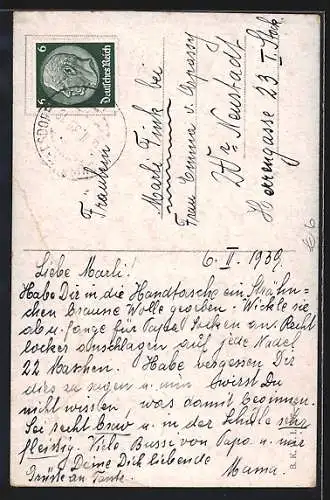 6
6
Deutsches Reich
Fräulein
Marli Fink bei
Frau Emma v.
Wr. Neustadt
Herrengasse 23 I. Stock
6. II. 1939
Liebe Marli!
Habe Dir in die Handtasche ein Strähn-
chen braune Wolle gegeben. Wickle sie
ab u. fange für Papa Socken an. Recht
locker anschlagen auf jede Nadel
22 Maschen. Habe vergessen Dir
dies zu sagen u. nun wirst Du
nicht wissen, was damit beginnen.
Sei recht brav u. in der Schule sehr
fleißig. Viele Bussi von Papa u. mir
Deine Dich liebende
Mama.
Grüße an Tante.
B. K. W. I.